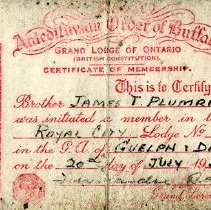 Antediluvian Order of Buffa
GRAND LODGE OF ONTARIO
(BRITISH CONSTITUTION)
CERTIFICATE OF MEMBERSHIP.
This is to Certify
Brother JAMES T. PLUMR
was initiated a member in t
ROYAL CITY Lodge No
in the P.A. of GUELPH & D
on the 20th day of JULY 19